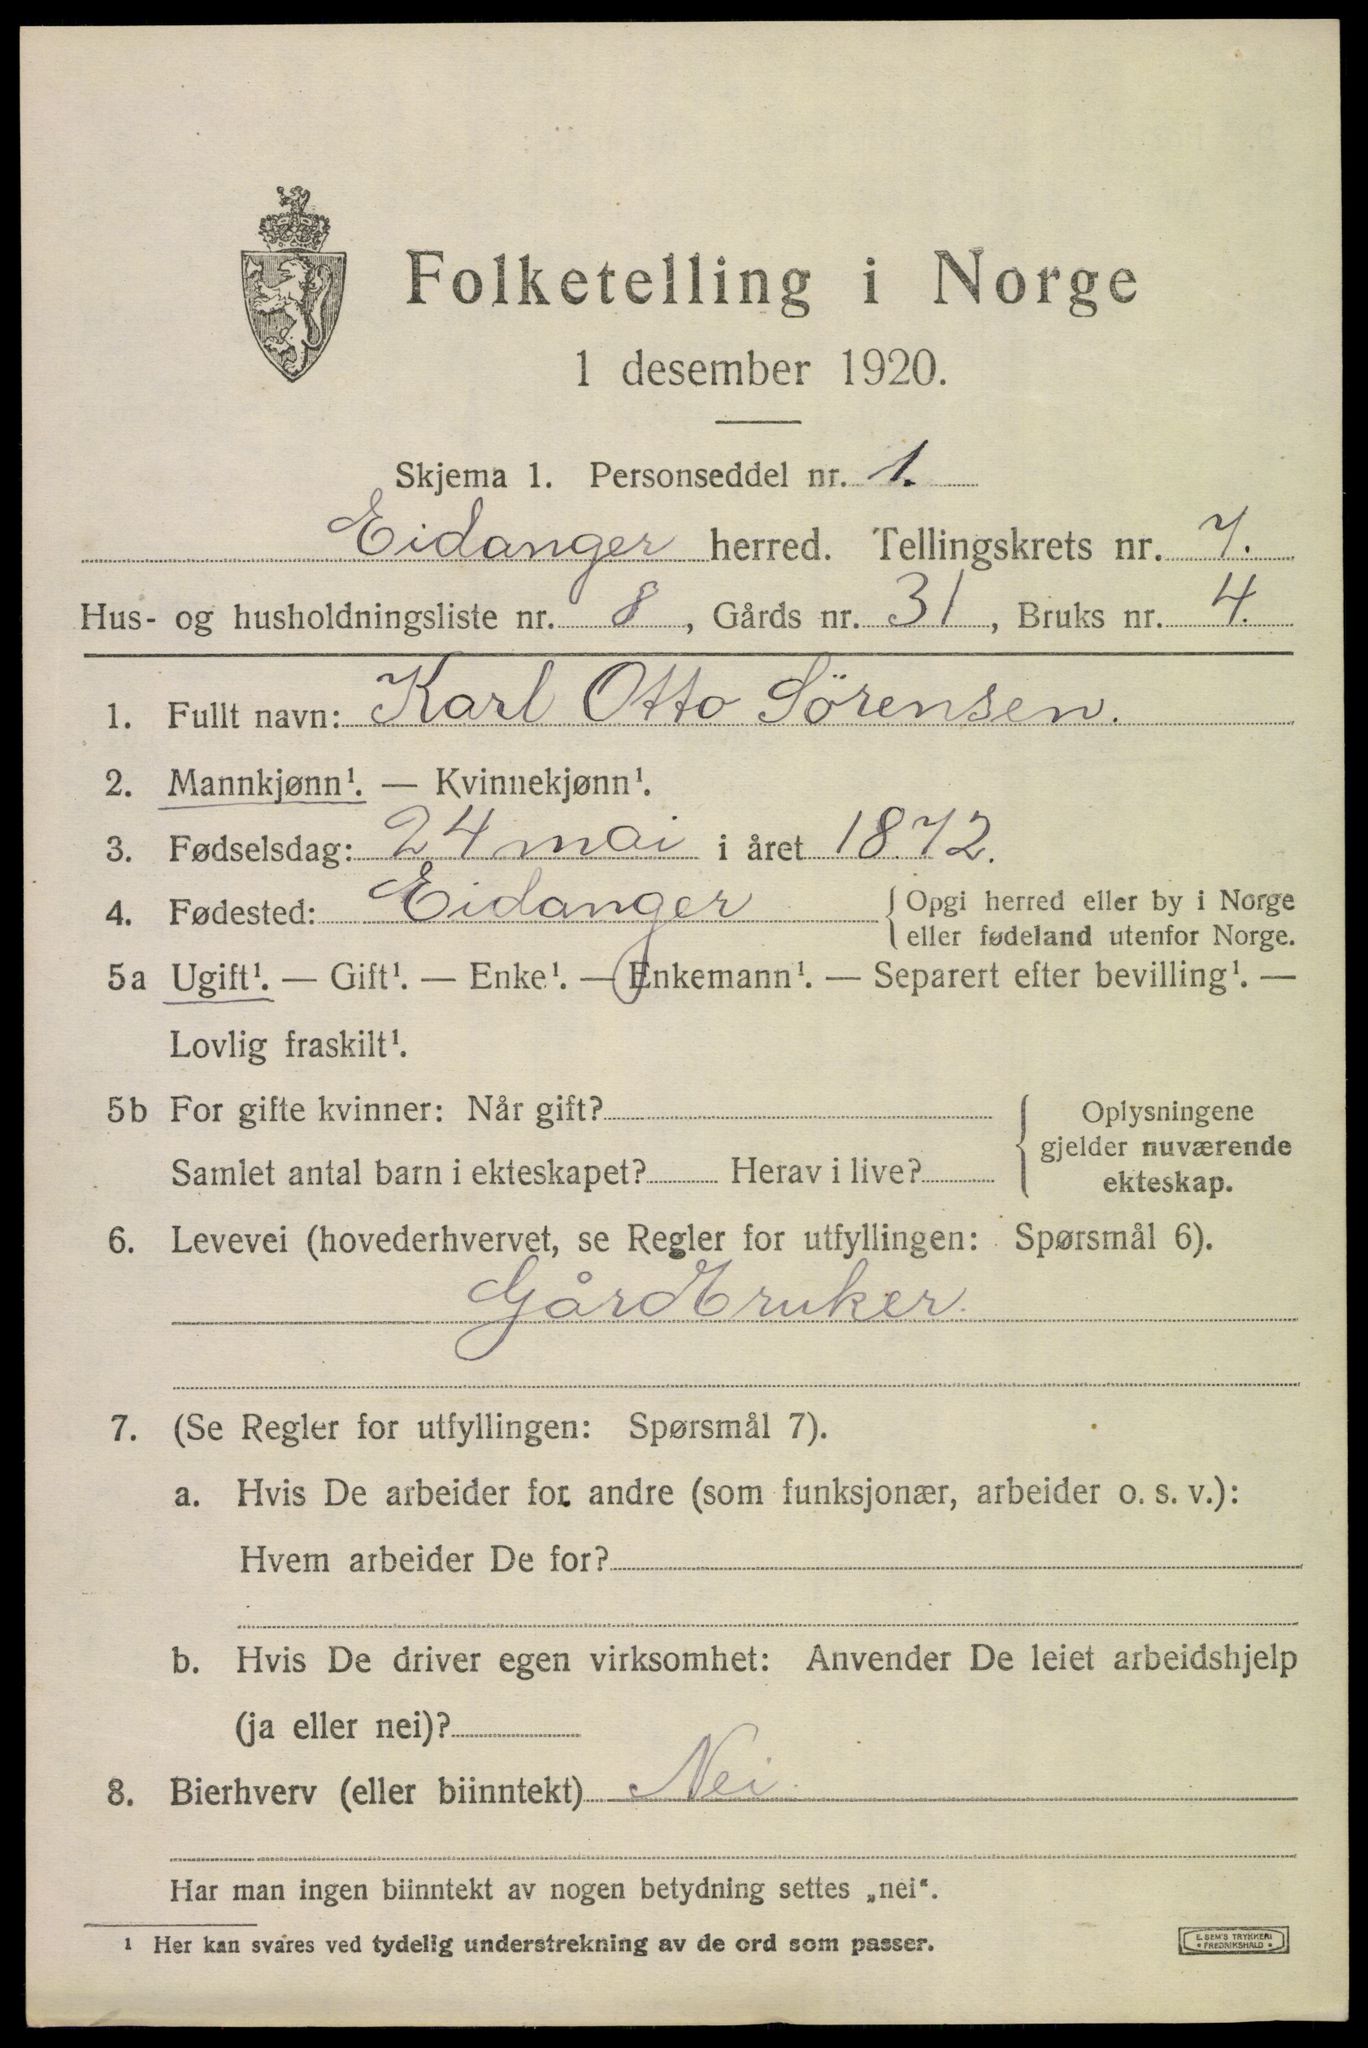 Folketelling i Norge
1 desember 1920.
Skjema 1. Personseddel nr. 1.
Eidanger herred. Tellingskrets nr. 7.
Hus- og husholdningsliste nr. 8, Gårds nr. 31, Bruks nr. 4.
1. Fullt navn: Karl Otto Sörensen.
2. Mannkjønn¹. — Kvinnekjønn¹.
3. Fødselsdag: 24 mai i året 1872.
4. Fødested: Eidanger { Opgi herred eller by i Norge
eller fødeland utenfor Norge.
5a Ugift¹. — Gift¹. — Enke¹. — Enkemann¹. — Separert efter bevilling¹. —
Lovlig fraskilt¹.
5b For gifte kvinner: Når gift? { Oplysningene
gjelder nuværende
Samlet antal barn i ekteskapet? Herav i live? ekteskap.
6. Levevei (hovederhvervet, se Regler for utfyllingen: Spørsmål 6).
Gårdbruker.
7. (Se Regler for utfyllingen: Spørsmål 7).
a. Hvis De arbeider for andre (som funksjonær, arbeider o. s. v.):
Hvem arbeider De for?
b. Hvis De driver egen virksomhet: Anvender De leiet arbeidshjelp
(ja eller nei)?
8. Bierhverv (eller biinntekt) Nei.
Har man ingen biinntekt av nogen betydning settes „nei“.
¹ Her kan svares ved tydelig understrekning av de ord som passer.
E. SEM'S TRYKKERI
• FREDRIKSHALD •